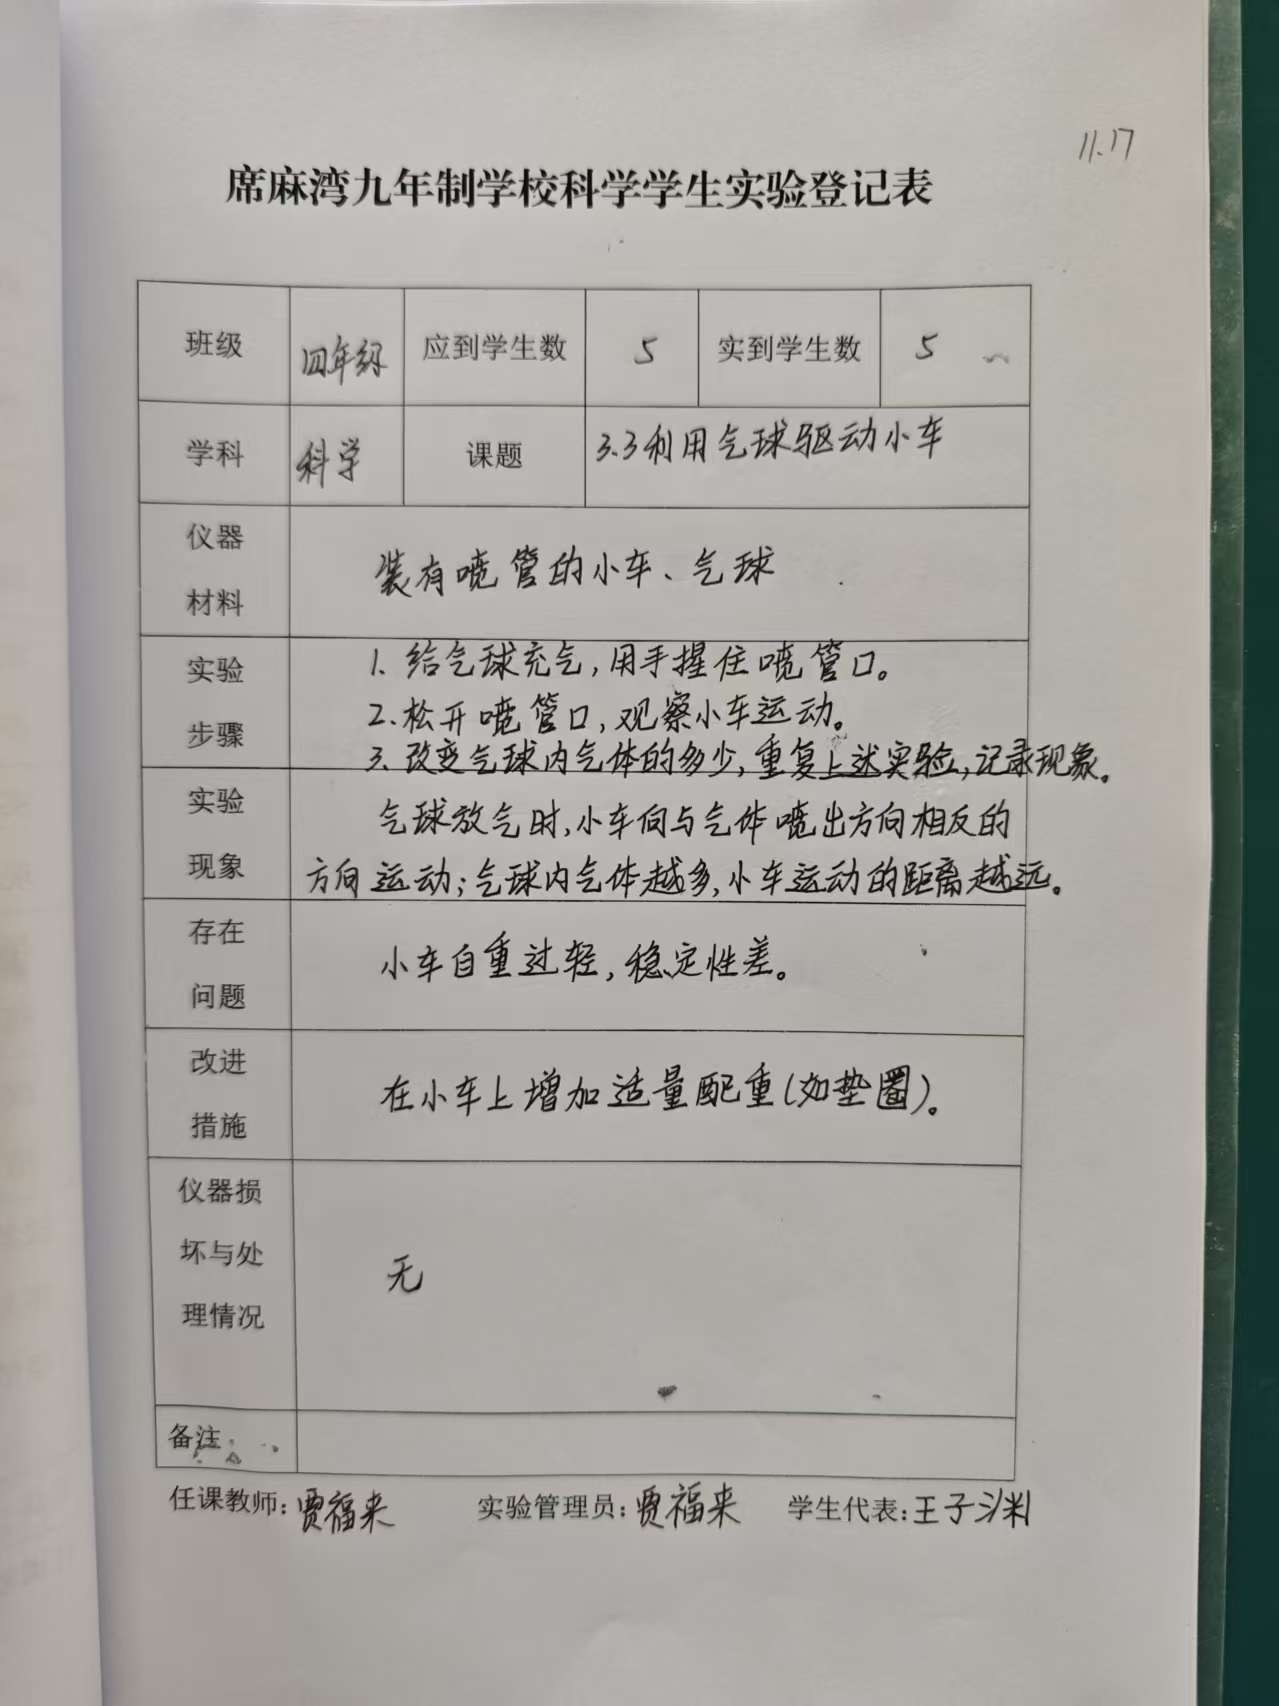 11.17
席麻湾九年制学校科学学生实验登记表
班级 四年级 应到学生数 5 实到学生数 5
学科 科学 课题 3.3利用气球驱动小车
仪器
材料
装有喷管的小车、气球
实验
步骤
1. 给气球充气,用手捏住喷管口。
2.松开喷管口,观察小车运动。
3. 改变气球内气体的多少,重复上述实验,记录现象。
实验
现象
气球放气时,小车向与气体喷出方向相反的
方向运动;气球内气体越多,小车运动的距离越远。
存在
问题
小车自重过轻,稳定性差。
改进
措施
在小车上增加适量配重(如垫圈)。
仪器损
坏与处
理情况
无
备注
任课教师:贾福来 实验管理员:贾福来 学生代表:王子渊